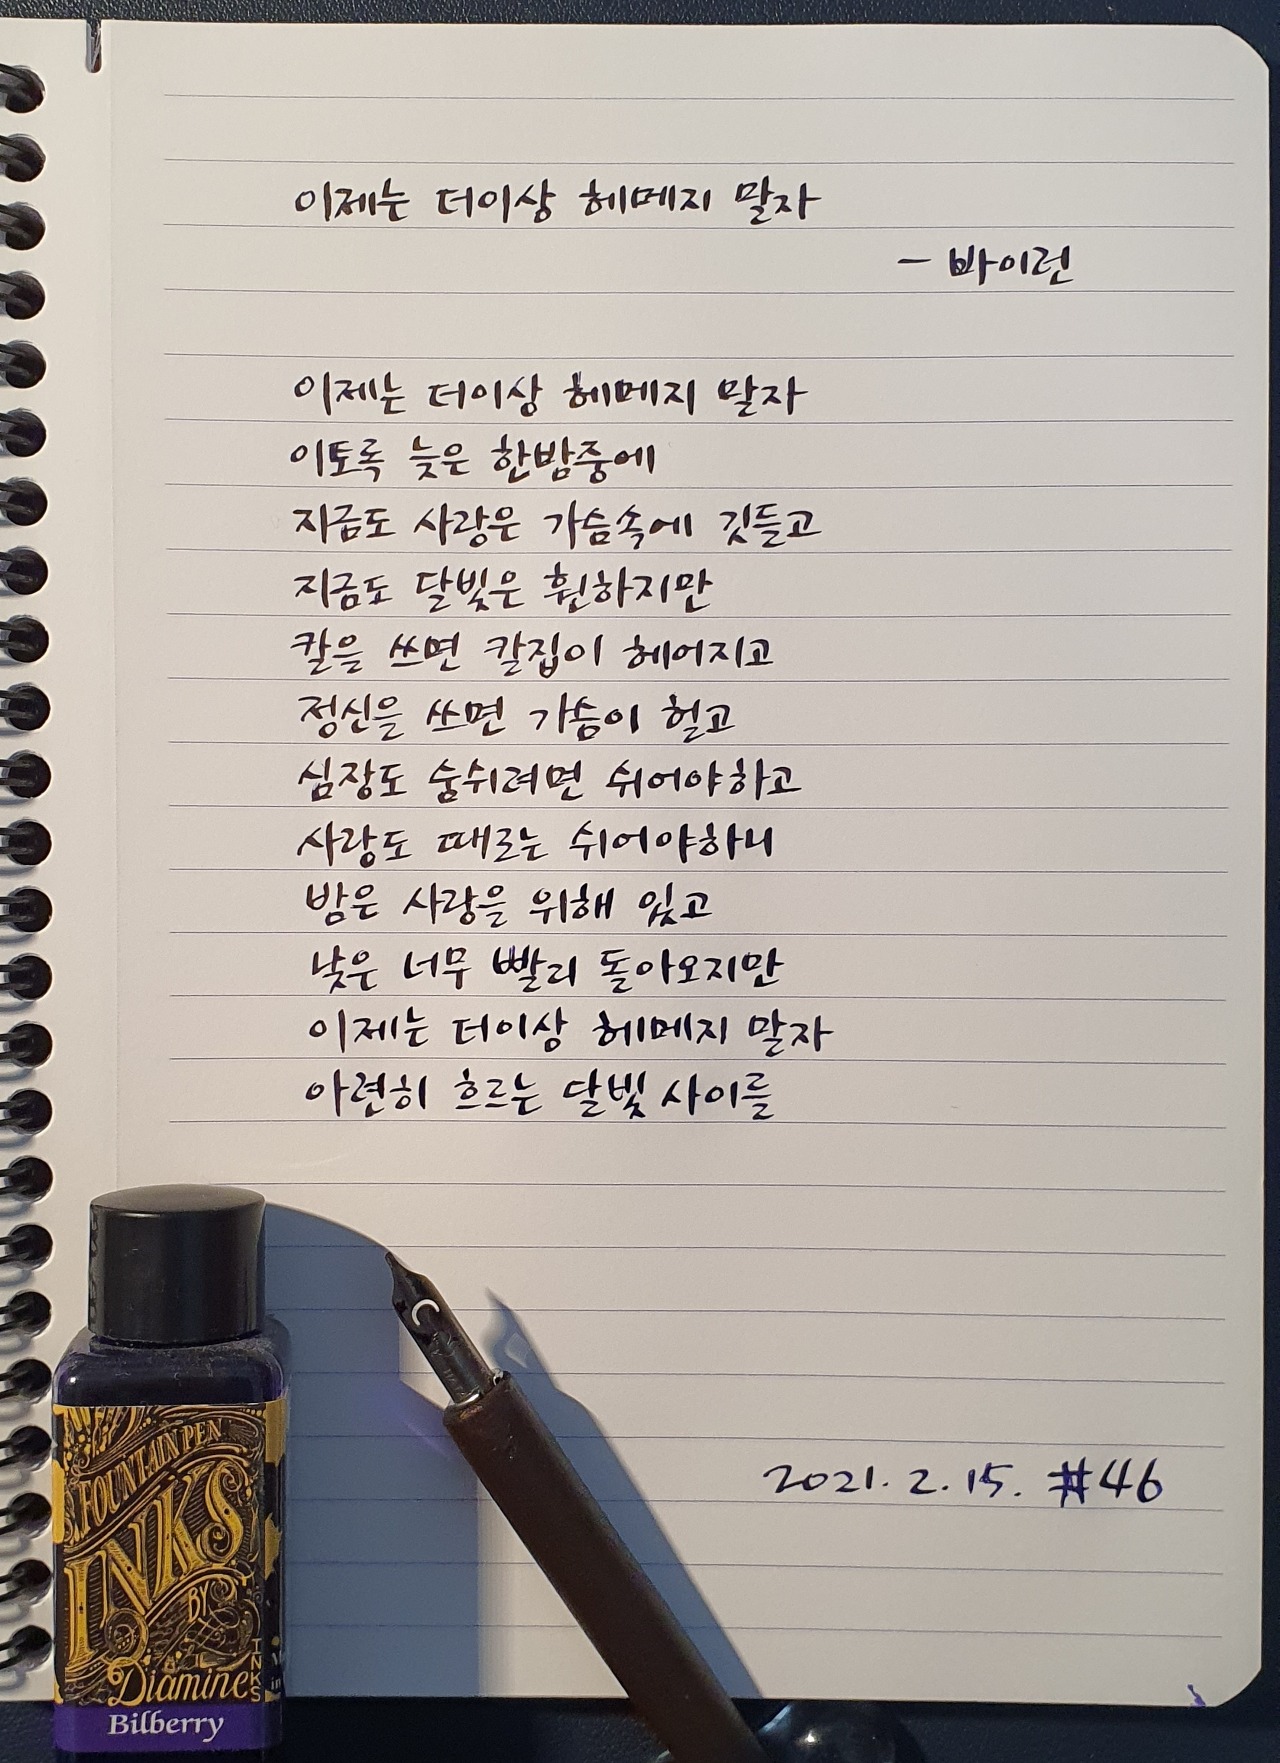 이제는 더이상 헤메지 말자
- 바이런
이제는 더이상 헤메지 말자
이토록 늦은 한밤중에
지금도 사랑은 가슴속에 깃들고
지금도 달빛은 훤하지만
칼을 쓰면 칼집이 헤어지고
정신을 쓰면 가슴이 헐고
심장도 숨쉬려면 쉬어야하고
사랑도 때로는 쉬어야하니
밤은 사랑을 위해 있고
낮은 너무 빨리 돌아오지만
이제는 더이상 헤메지 말자
아련히 흐르는 달빛 사이를
2021. 2. 15. #46
FOUNTAIN PEN
INKS
BY
Diamine
INKS
Bilberry